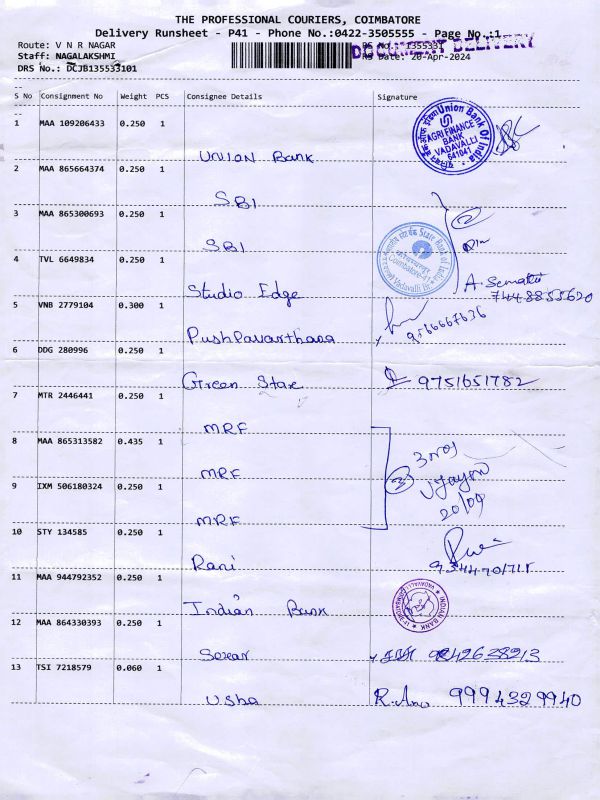 THE PROFESSIONAL COURIERS, COIMBATORE
Delivery Runsheet - P41 - Phone No.:0422-3505555 - Page No.:1
Route: V N R NAGAR
Staff: NAGALAKSHMI
DRS No.: DCJB135533101
RS No.: 1355331
RS Date: 20-Apr-2024
DOCUMENT DELIVERY
S No Consignment No Weight PCS Consignee Details Signature
1 MAA 109206433 0.250 1 Union Bank
Union Bank Of India
AGRI FINANCE
BANK
VADAVALLI
641041
2 MAA 865664374 0.250 1 SBI
3 MAA 865300693 0.250 1 SBI
2
State Bank of India
Coimbatore-41
Vadavalli
4 TVL 6649834 0.250 1 Studio Edge
7448855620
5 VNB 2779104 0.300 1 Pushpavarthana
9566667636
6 DDG 280996 0.250 1 Green Star
9751651782
7 MTR 2446441 0.250 1 MRF
8 MAA 865313582 0.435 1 MRF
3
3 Nos
20/04
9 IXM 506180324 0.250 1 MRF
10 STY 134585 0.250 1 Rani
11 MAA 944792352 0.250 1 Indian Bank
INDIAN BANK
VADAVALLI
12 MAA 864330393 0.250 1
9842628213
13 TSI 7218579 0.060 1 Usha
9994329940